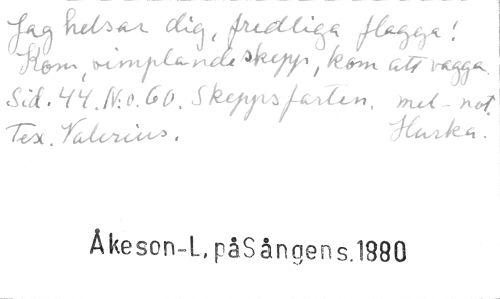 Jag helsar dig, fredliga flagga!
Kom, vimplande skepp, kom att vagga
Sid. 44. N:o. 60. Skeppsfarten. mel-not.
Tex. Valerius. Hurka.
Åkeson-L, påSångens.1880